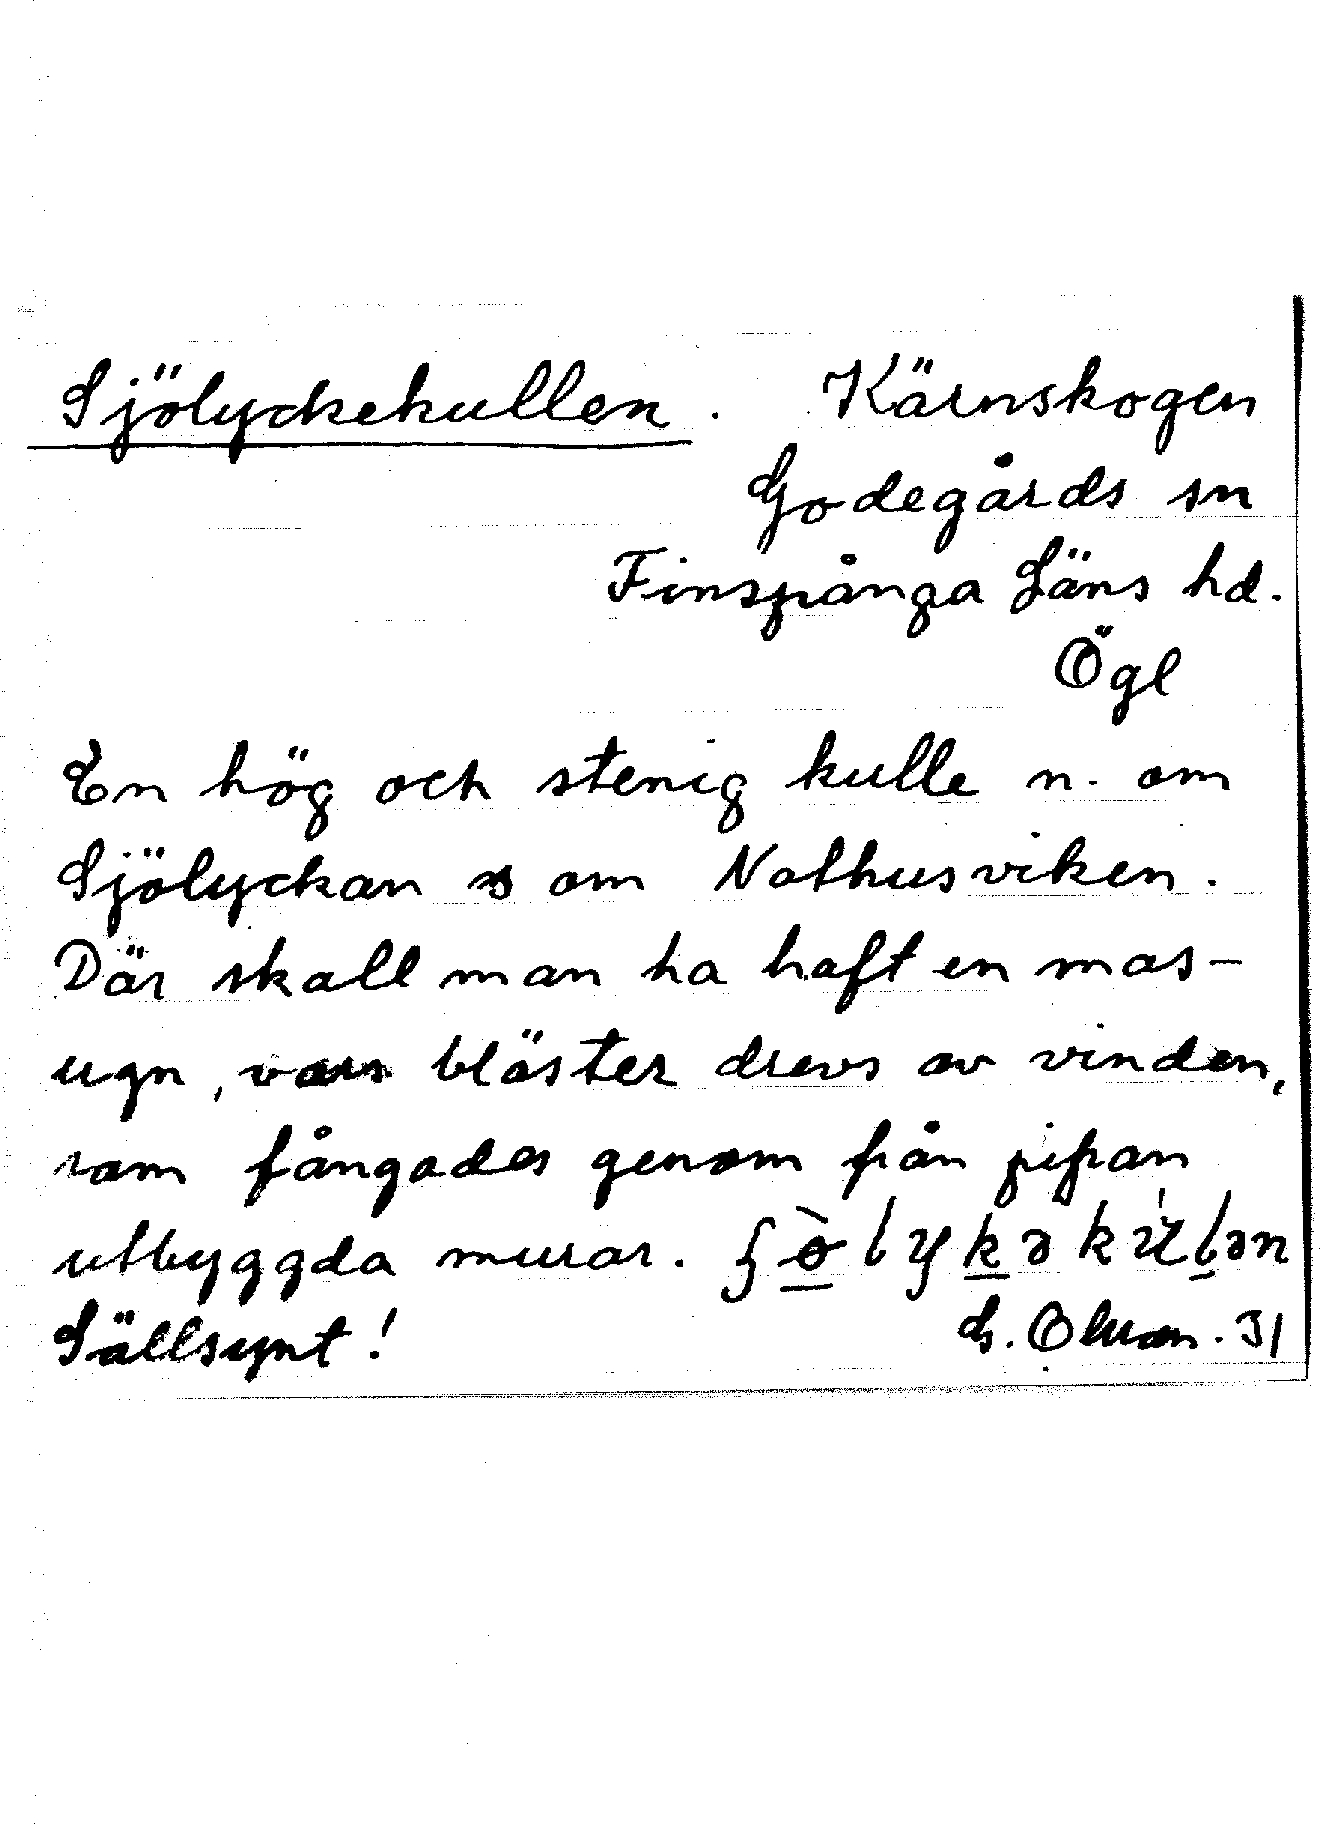 Sjölyckekullen. Kärnskogen
Godegårds sn
Finspånga Läns hd.
Ögl
En hög och stenig kulle n. om
Sjölyckan s om Nothusviken.
Där skall man ha haft en mas-
ugn, vars bläster drevs av vinden,
som fångades genom från pipan
utbyggda murar.
Sällsynt! G. Olson. 31